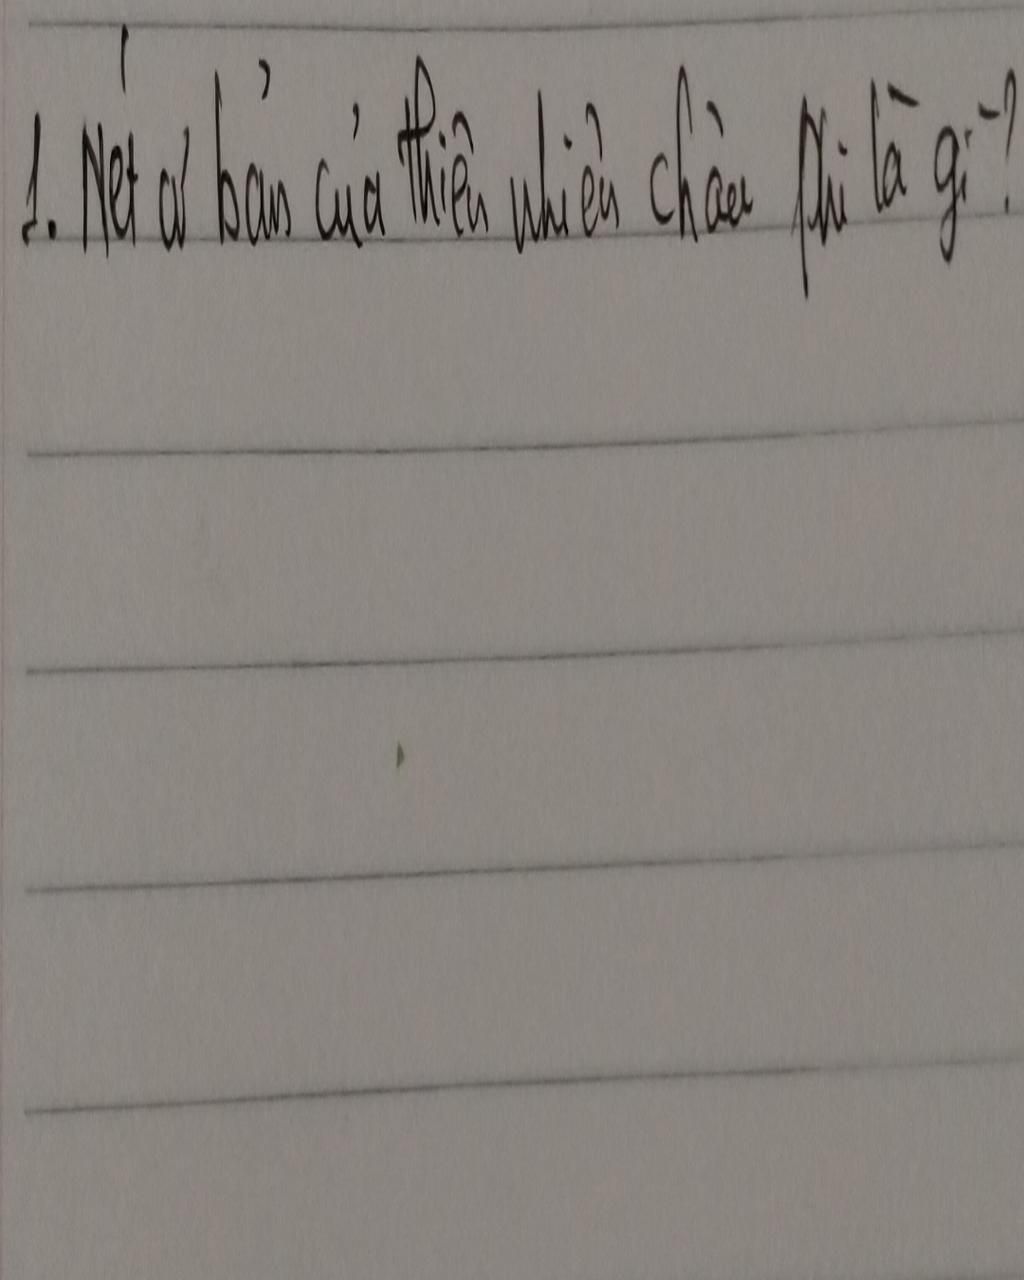 1. Nét cơ bản của thiên nhiên châu phi là gì?